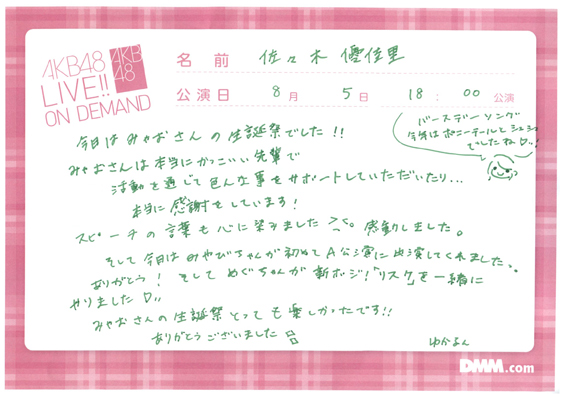 AKB48
LIVE!!
ON DEMAND
AKB
48
名前 佐々木優佳里
公演日 8月 5日 18:00 公演
バースデーソング
今年はポニーテールとシュシュ
でしたね♡!!
今日はみゃおさんの生誕祭でした!!
みゃおさんは本当にかっこいい先輩で
活動を通じて色んな事をサポートしていただいたり...
本当に感謝をしています!
スピーチの言葉も心に染みました >_<。感動しました。
そして今日はみやびちゃんが初めてA公演に出演してくれました、。
ありがとう! そしてめぐちゃんが新ポジ!「リスク」を一緒に
やりました♡!!
みゃおさんの生誕祭とっても楽しかったです!!
ありがとうございました
ゆかるん
DMM.com